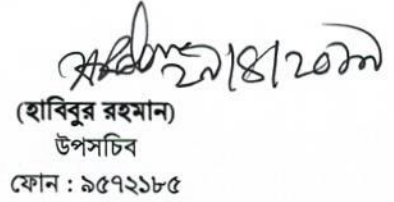 ২৯|৪|২০১৯
(হাবিবুর রহমান)
উপসচিব
ফোন : ৯৫৭২১৮৫